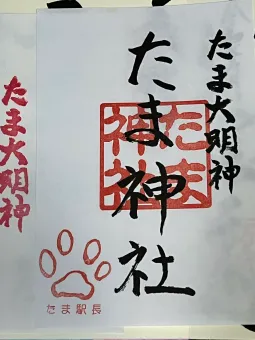 たま大明神
たま神社
たま神社
たま駅長
たま大明神